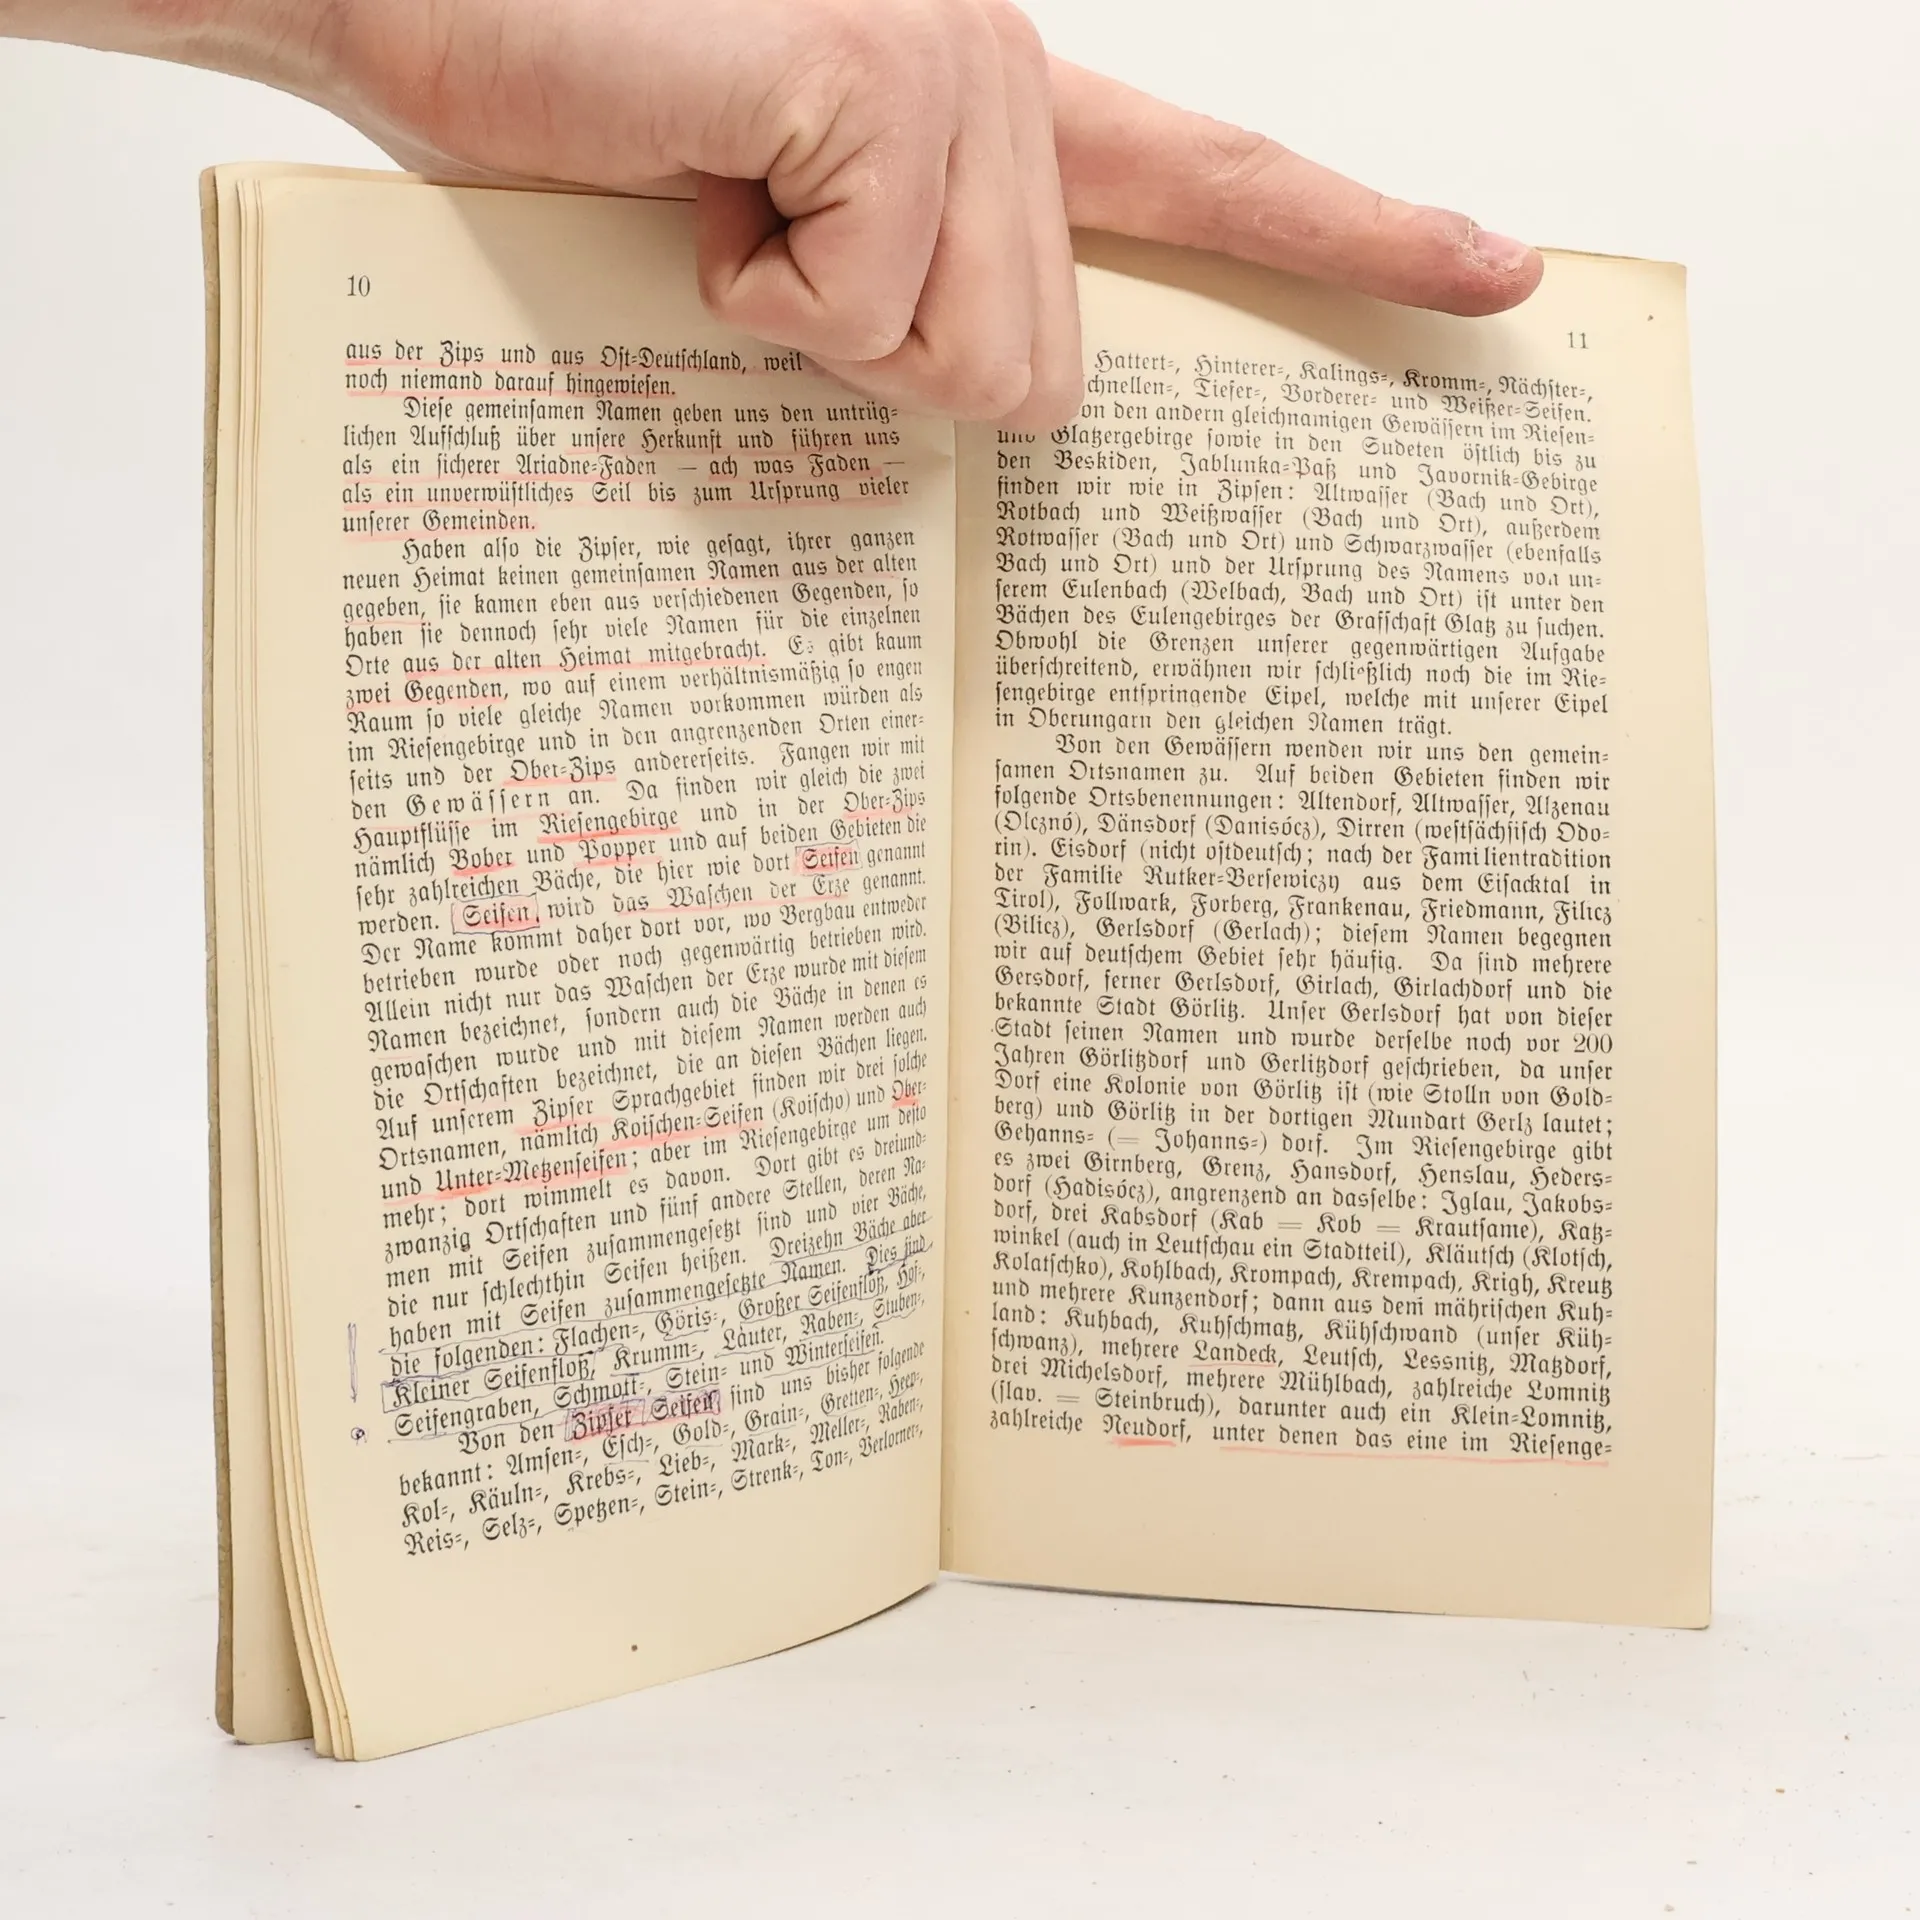 10
aus der Zips und aus Ost=Deutschland, weil
noch niemand darauf hingewiesen.
Diese gemeinsamen Namen geben uns den untrüg=
lichen Aufschluß über unsere Herkunft und führen uns
als ein sicherer Ariadne=Faden — ach was Faden —
als ein unverwüstliches Seil bis zum Ursprung vieler
unserer Gemeinden.
Haben also die Zipser, wie gesagt, ihrer ganzen
neuen Heimat keinen gemeinsamen Namen aus der alten
gegeben, sie kamen eben aus verschiedenen Gegenden, so
haben sie dennoch sehr viele Namen für die einzelnen
Orte aus der alten Heimat mitgebracht. Es gibt kaum
zwei Gegenden, wo auf einem verhältnismäßig so engen
Raum so viele gleiche Namen vorkommen würden als
im Riesengebirge und in den angrenzenden Orten einer=
seits und der Ober=Zips andererseits. Fangen wir mit
den Gewässern an. Da finden wir gleich die zwei
Hauptflüsse im Riesengebirge und in der Ober=Zips
nämlich Bober und Popper und auf beiden Gebieten die
sehr zahlreichen Bäche, die hier wie dort Seifen genannt
werden. Seifen wird das Waschen der Erze genannt.
Der Name kommt daher dort vor, wo Bergbau entweder
betrieben wurde oder noch gegenwärtig betrieben wird.
Allein nicht nur das Waschen der Erze wurde mit diesem
Namen bezeichnet, sondern auch die Bäche in denen es
gewaschen wurde und mit diesem Namen werden auch
die Ortschaften bezeichnet, die an diesen Bächen liegen.
Auf unserem Zipser Sprachgebiet finden wir drei solche
Ortsnamen, nämlich Koischen=Seifen (Koischo) und Ober=
und Unter=Metzenseifen; aber im Riesengebirge um desto
mehr; dort wimmelt es davon. Dort gibt es dreiund=
zwanzig Ortschaften und fünf andere Stellen, deren Na=
men mit Seifen zusammengesetzt sind und vier Bäche,
die nur schlechthin Seifen heißen. Dreizehn Bäche aber
haben mit Seifen zusammengesetzte Namen. Dies sind
die folgenden: Flachen=, Göris=, Großer Seifenfloß, Hof=,
Kleiner Seifenfloß, Krumm=, Läuter, Raben=, Stuben=,
Seifengraben, Schmott=, Stein= und Winterseifen.
Von den Zipser Seifen sind uns bisher folgende
bekannt: Amsen=, Esch=, Gold=, Grain=, Gretten=, Heep=,
Kol=, Käuln=, Krebs=, Lieb=, Mark=, Meller=, Raben=,
Reis=, Selz=, Spetzen=, Stein=, Strenk=, Ton=, Verlorner=,
11
Hattert=, Hinterer=, Kalings=, Kromm=, Nächster=,
chnellen=, Tiefer=, Vorderer= und Weißer=Seifen.
on den andern gleichnamigen Gewässern im Riesen=
und Glatzergebirge sowie in den Sudeten östlich bis zu
den Beskiden, Jablunka=Paß und Javornik=Gebirge
finden wir wie in Zipsen: Altwasser (Bach und Ort),
Rotbach und Weißwasser (Bach und Ort), außerdem
Rotwasser (Bach und Ort) und Schwarzwasser (ebenfalls
Bach und Ort) und der Ursprung des Namens von un=
serem Eulenbach (Welbach, Bach und Ort) ist unter den
Bächen des Eulengebirges der Grafschaft Glatz zu suchen.
Obwohl die Grenzen unserer gegenwärtigen Aufgabe
überschreitend, erwähnen wir schließlich noch die im Rie=
sengebirge entspringende Eipel, welche mit unserer Eipel
in Oberungarn den gleichen Namen trägt.
Von den Gewässern wenden wir uns den gemein=
samen Ortsnamen zu. Auf beiden Gebieten finden wir
folgende Ortsbenennungen: Altendorf, Altwasser, Alzenau
(Olcznó), Dänsdorf (Danisócz), Dirren (westsächsisch Odo=
rin). Eisdorf (nicht ostdeutsch; nach der Familientradition
der Familie Rutker=Bersewiczy aus dem Eisacktal in
Tirol), Follwark, Forberg, Frankenau, Friedmann, Filicz
(Bilicz), Gerlsdorf (Gerlach); diesem Namen begegnen
wir auf deutschem Gebiet sehr häufig. Da sind mehrere
Gersdorf, ferner Gerlsdorf, Girlach, Girlachdorf und die
bekannte Stadt Görlitz. Unser Gerlsdorf hat von dieser
Stadt seinen Namen und wurde derselbe noch vor 200
Jahren Görlitzdorf und Gerlitzdorf geschrieben, da unser
Dorf eine Kolonie von Görlitz ist (wie Stolln von Gold=
berg) und Görlitz in der dortigen Mundart Gerlz lautet;
Gehanns= (= Johanns=) dorf. Im Riesengebirge gibt
es zwei Girnberg, Grenz, Hansdorf, Henslau, Heders=
dorf (Hadisócz), angrenzend an dasselbe: Iglau, Jakobs=
dorf, drei Kabsdorf (Kab = Kob = Krautsame), Katz=
winkel (auch in Leutschau ein Stadtteil), Kläutsch (Klotsch,
Kolatschko), Kohlbach, Krompach, Krempach, Krigh, Kreutz
und mehrere Kunzendorf; dann aus dem mährischen Kuh=
land: Kuhbach, Kuhschmatz, Kühschwand (unser Küh=
schwanz), mehrere Landeck, Leutsch, Lessnitz, Matzdorf,
drei Michelsdorf, mehrere Mühlbach, zahlreiche Lomnitz
(slav. = Steinbruch), darunter auch ein Klein=Lomnitz,
zahlreiche Neudorf, unter denen das eine im Riesenge=